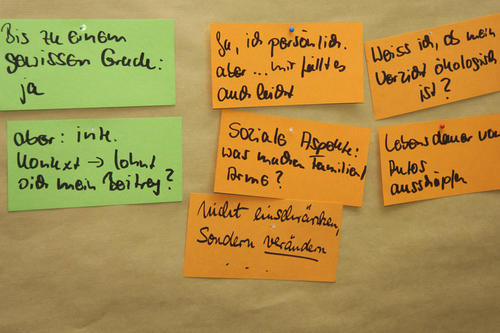 Bis zu einem
gewissen Grade:
ja
aber: inte.
Kontext → lohnt
sich mein Beitrag?
Ja, ich persönlich.
aber ... mir fällt es
auch leicht
Soziale Aspekte:
was machen Familien/
Arme?
Nicht einschränken,
Sondern verändern
. . .
Weiss ich, ob mein
Verzicht ökologisch
ist?
Lebensdauer von
Autos
ausschöpfen